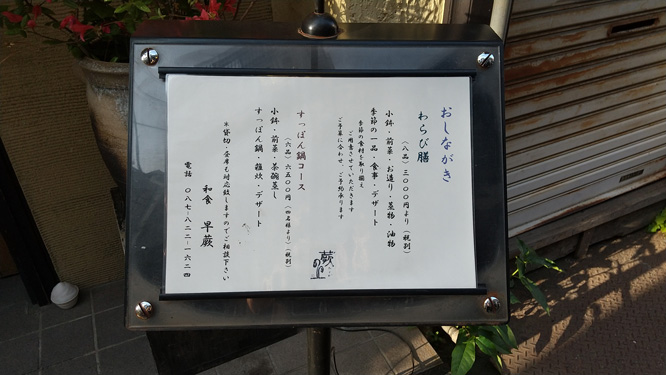 おしながき
わらび膳
(八品) 三〇〇〇円より (税別)
小鉢・前菜・お造り・蒸物・油物
季節の一品・食事・デザート
季節の食材を取り揃え
ご用意させていただきます
ご予算に合わせ、ご予約承ります
すっぽん鍋コース
(六品) 六五〇〇円 (四名様より) (税別)
小鉢・前菜・茶碗蒸し
すっぽん鍋・雑炊・デザート
*貸切・昼席も対応致しますのでご相談下さい
和食 早蕨
電話 〇八七-八二二-一六二四